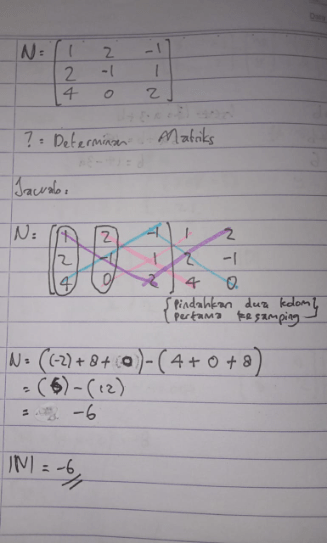 N = [ 1 2 -1
2 -1 1
4 0 2 ]
? = Determinan Matriks
Jawab:
N = [ 1 2 -1 ] 1 2
2 -1 1 2 -1
4 0 2 4 0
{ Pindahkan dua kolom
pertama ke samping }
N = ((-2) + 8 + 0) - (4 + 0 + 8)
= (6) - (12)
= -6
|N| = -6